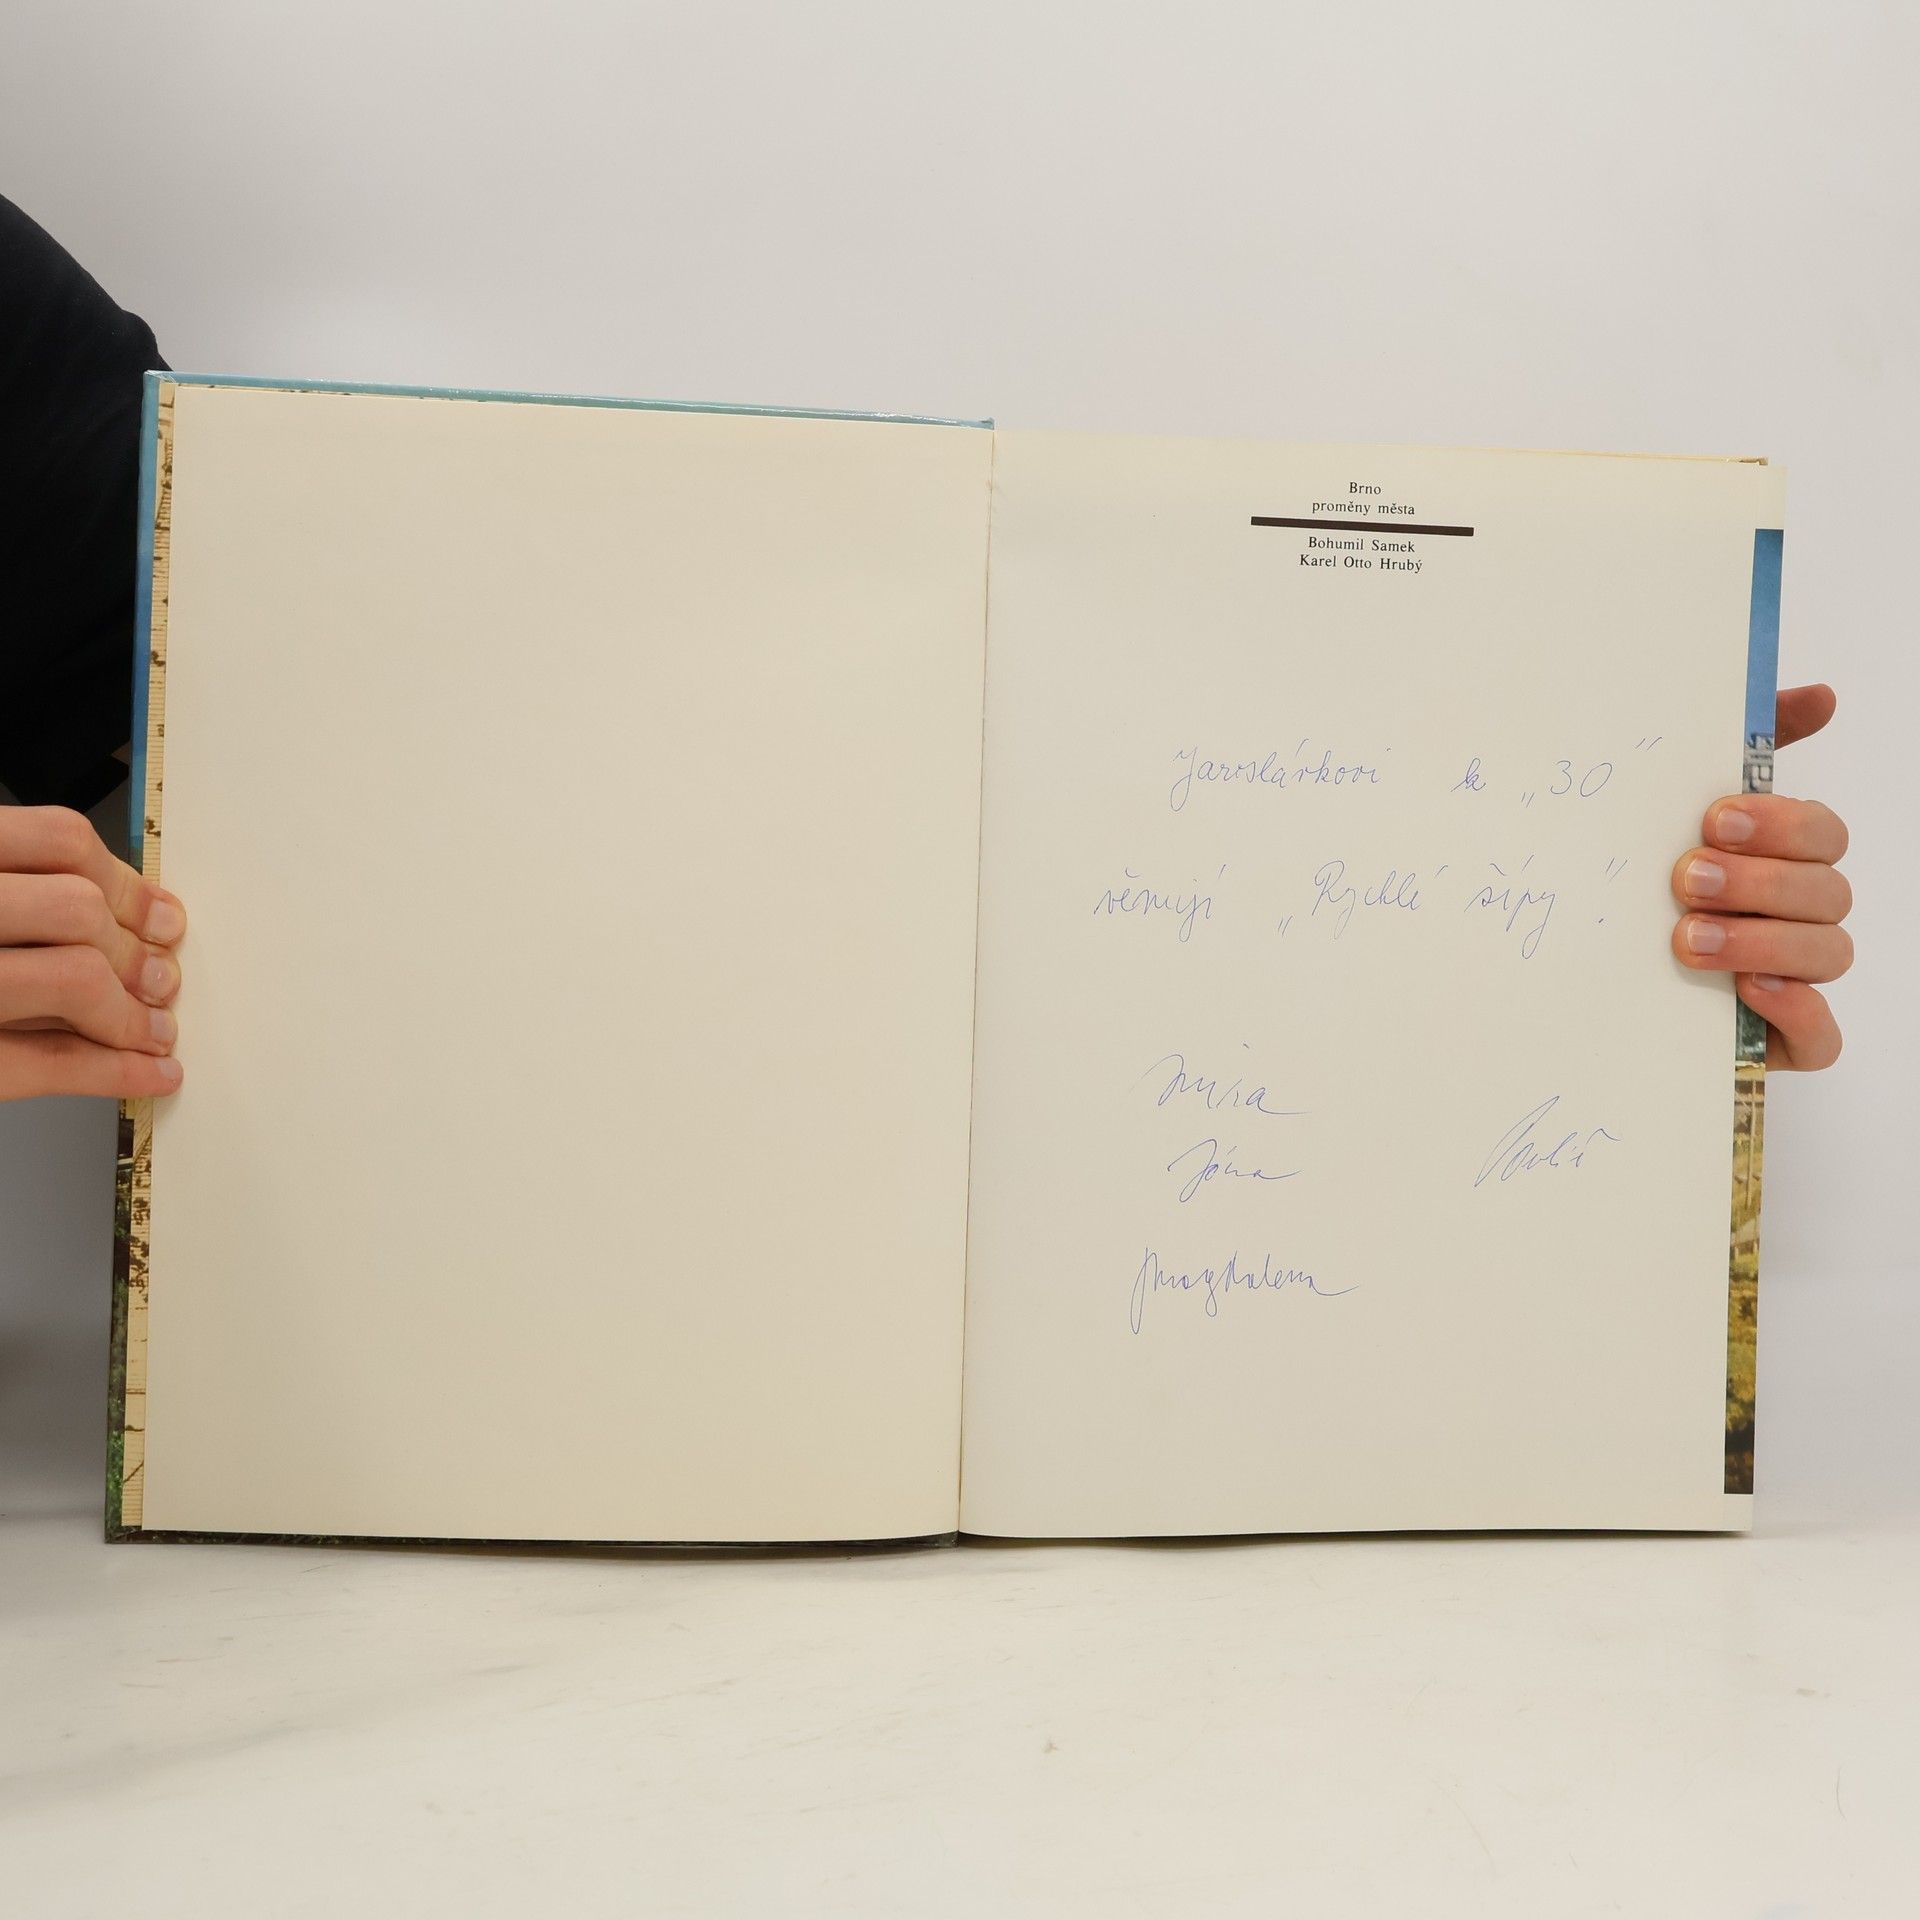 Brno
proměny města
Bohumil Samek
Karel Otto Hrubý
Jaroslávkovi k „30"
věnují „Rychlé šípy".
Míra
Jóna
Magdalena